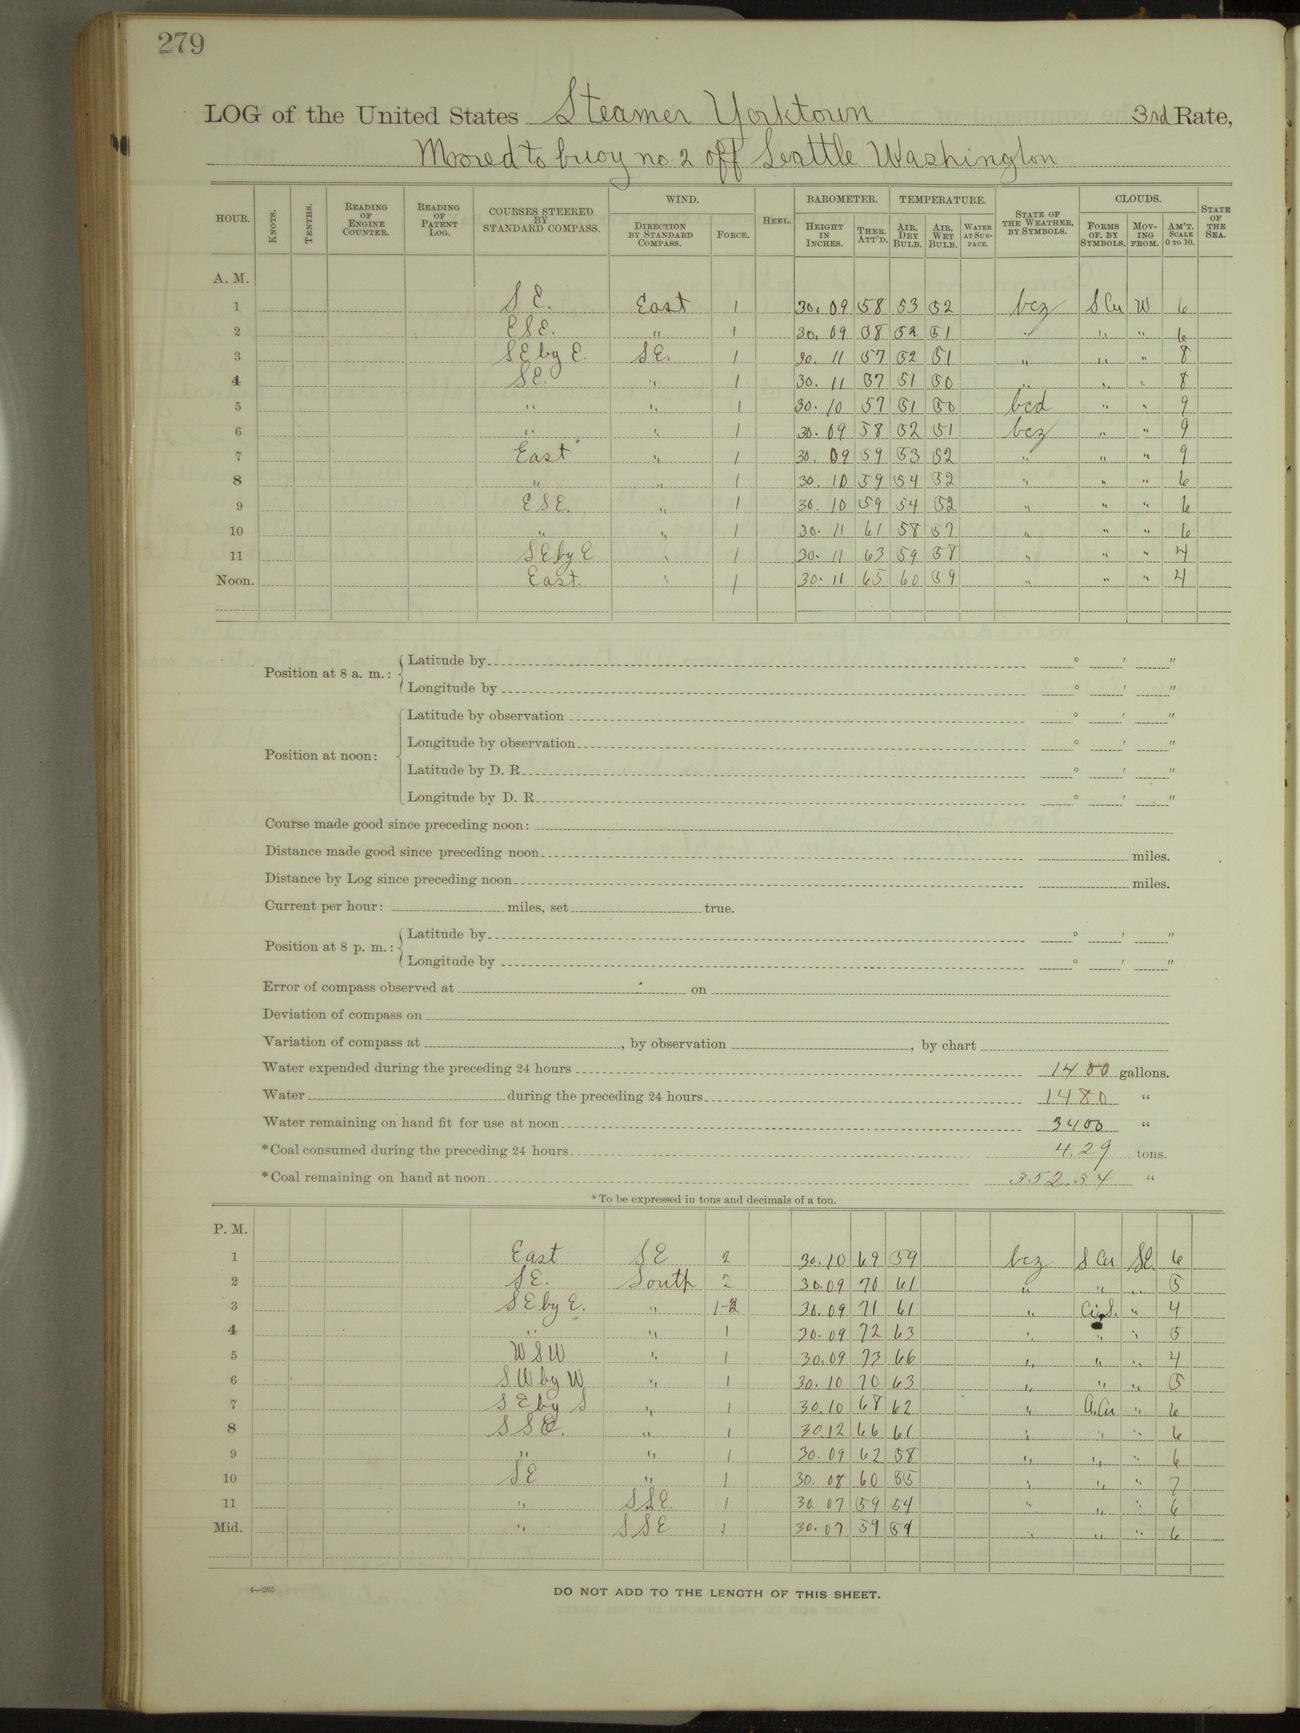 279
LOG of the United States Steamer Yorktown 3rd Rate,
Moored to buoy no 2 off Seattle Washington
HOUR. KNOTS. TENTHS. READING OF ENGINE COUNTER. READING OF PATENT LOG. COURSES STEERED BY STANDARD COMPASS. WIND. DIRECTION BY STANDARD COMPASS. FORCE. HEEL. BAROMETER. HEIGHT IN INCHES. THER. ATT'D. TEMPERATURE. AIR, DRY BULB. AIR, WET BULB. WATER AT SURFACE. STATE OF THE WEATHER, BY SYMBOLS. CLOUDS. FORMS OF, BY SYMBOLS. MOVING FROM. AM'T. SCALE 0 TO 10. STATE OF THE SEA.
A. M.
1 S E. East 1 30.09 58 53 52 bcz S Cu W 6
2 E S E. " 1 30.09 58 52 51 " " " 6
3 SE by E. SE. 1 30.11 57 52 51 " " " 8
4 SE. " 1 30.11 57 51 50 " " " 8
5 " " 1 30.10 57 51 50 bcd " " 9
6 " " 1 30.09 58 52 51 bcz " " 9
7 East " 1 30.09 59 53 52 " " " 9
8 " " 1 30.10 59 54 52 " " " 6
9 E S E. " 1 30.10 59 54 52 " " " 6
10 " " 1 30.11 61 58 57 " " " 6
11 SE by E " 1 30.11 63 59 58 " " " 4
Noon. East. " 1 30.11 65 60 59 " " " 4
Position at 8 a. m.: Latitude by ° ′ ″
Longitude by ° ′ ″
Position at noon: Latitude by observation ° ′ ″
Longitude by observation ° ′ ″
Latitude by D. R. ° ′ ″
Longitude by D. R. ° ′ ″
Course made good since preceding noon:
Distance made good since preceding noon miles.
Distance by Log since preceding noon miles.
Current per hour: miles, set true.
Position at 8 p. m.: Latitude by ° ′ ″
Longitude by ° ′ ″
Error of compass observed at on
Deviation of compass on
Variation of compass at , by observation , by chart
Water expended during the preceding 24 hours 1400 gallons.
Water during the preceding 24 hours 1480 "
Water remaining on hand fit for use at noon 3400 "
*Coal consumed during the preceding 24 hours 4.29 tons.
*Coal remaining on hand at noon 352.54 "
*To be expressed in tons and decimals of a ton.
P. M.
1 East S E 2 30.10 69 59 bcz S Cu SE. 6
2 SE. South 2 30.09 70 61 " " " 5
3 S E by E. " 1-2 30.09 71 61 " Ci.S. " 4
4 " " 1 30.09 72 63 " " " 5
5 W S W " 1 30.09 73 66 " " " 4
6 S W by W " 1 30.10 70 63 " " " 5
7 S E by S " 1 30.10 68 62 " A.Cu " 6
8 S S E. " 1 30.12 66 61 " " " 6
9 " " 1 30.09 62 58 " " " 6
10 SE " 1 30.08 60 55 " " " 7
11 " SSE. 1 30.07 59 54 " " " 6
Mid. " S S E 1 30.07 59 54 " " " 6
4—265
DO NOT ADD TO THE LENGTH OF THIS SHEET.